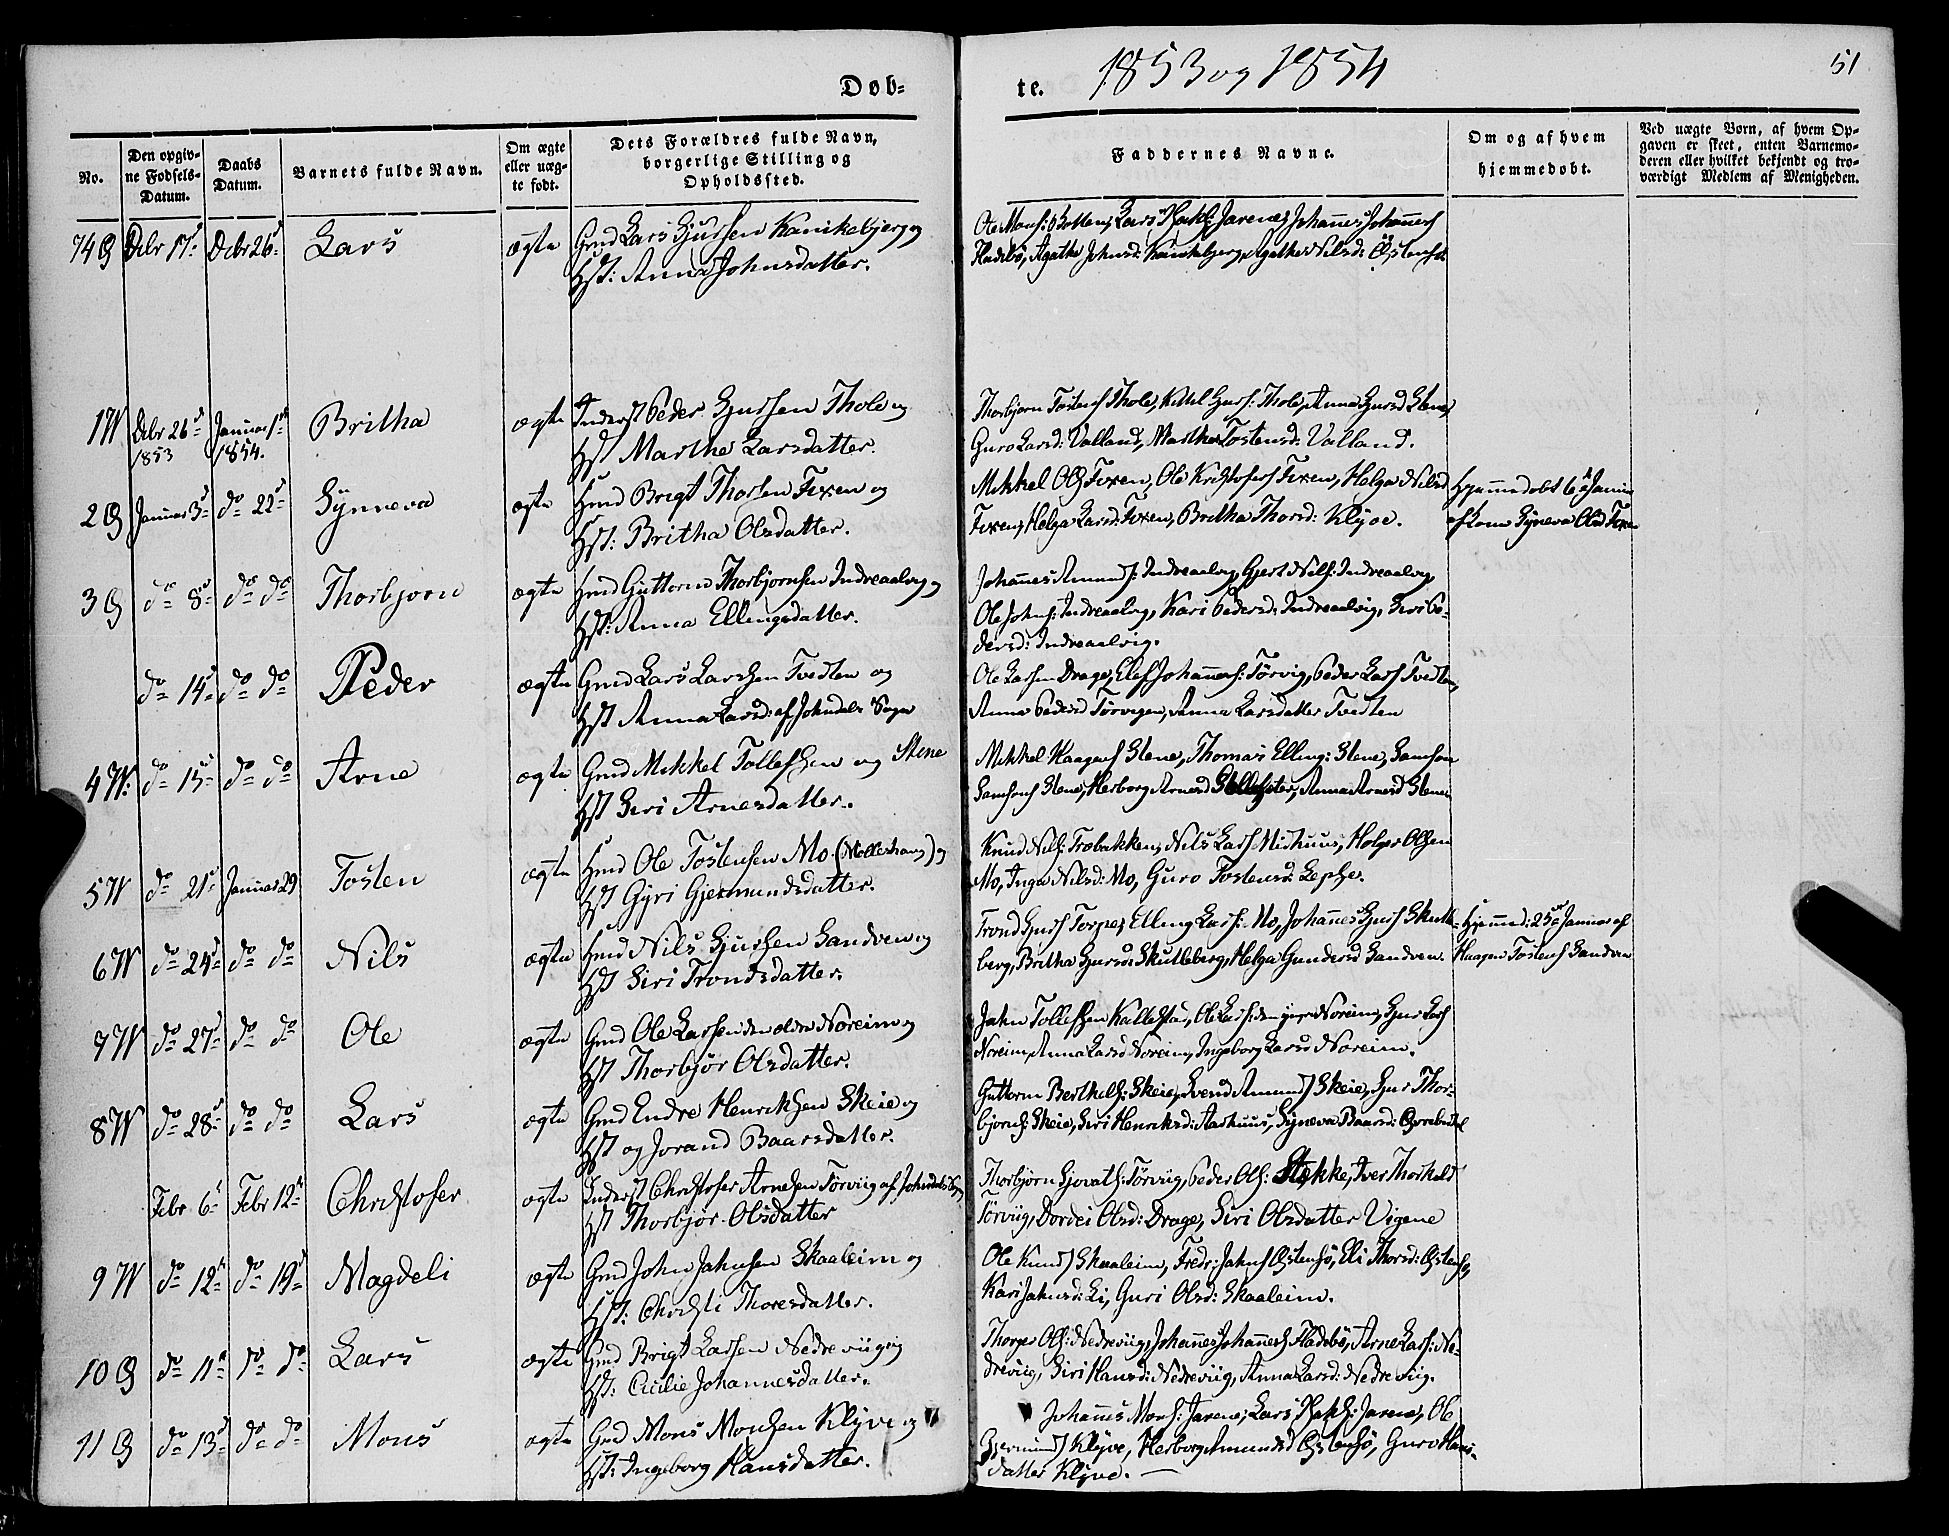 Døb-
te. 1853 og 1854
51
No.
Den opgiv-
ne Fødsels-
Datum.
Daabs
Datum.
Barnets fulde Navn.
Om ægte
eller uæg-
te født.
Dets Forældres fulde Navn,
borgerlige Stilling og
Opholdssted.
Faddernes Navne.
Om og af hvem
hjemmedøbt.
Ved uægte Børn, af hvem Op-
gaven er skeet, enten Barnemo-
deren eller hvilket bekjendt og tro-
værdigt Medlem af Menigheden.
74 Ø Debr 17de Debr 26de Lars ægte Gmd Lars Gjursen Kanikebjerg og
Hst: Anna Johnsdatter.
Ole Mons: Botten, Lars Hakl: Jarenes Johannes Johannes
Fladebø, Agathe Johnsd: Kanikebjerg, Agathe Nilsd: Østensø
1 W Debr 26de Januar 1ste Britha ægte Inderst Peder Gjursen Thole og
1853 1854.
Hst Marthe Larsdatter.
Thorbjørn Tostens Thole, Kittil Gjurs: Thole, Anna Gjursd Stene,
Guro Larsd: Valland, Martha Tostensd: Valland.
2 Ø Januar 3de do 22de Synneva ægte Hmd Brigt Thorsen Fixen og
Hst: Britha Olsdatter.
Mikkel Ols Fixen, Ole Kristofers Fixen, Helga Nilsd
Fixen, Helga Larsd: Fixen, Britha Thorsd: Klyve.
Hjemmedøbt 6te Januar
af Kone Syneva Olsd Fixen
3 Ø do 8de do do Thorbjørn ægte Hmd Guttorm Thorbjørnsen Indreaalvig og
Hst: Anna Ellingsdatter.
Johannes Amunds: Indreaalvig, Gjert Nils: Indreaalvig,
Ole Johns: Indreaalvig, Kari Pedersd: Indreaalvig, Siri Pe-
dersd: Indreaalvig.
do 14de do do Peder ægte Gmd Lars Larsen Tvedten og
Hst Anna Larsd: af Jondals Sogn
Ole Larsen Drage, Elef Johannes: Tørvig, Peder Lars Tvedten,
Anna Pedersd Tørvigen, Anna Larsdatter Tvedten
4 W. do 15de do do Arne ægte Gmd Mikkel Tollefsen og Stene
Hst Siri Arnesdatter.
Mikkel Haagens Stene, Thomas Elling: Stene, Samson
Samsons Stene, Herborg Arnesd, Anna Arnesd Stene
5 W do 21de Januar 29 Tosten ægte Hmd Ole Tostensen Mo (Mollerhaug) og
Hst Gyri Gjermundsdatter.
Knud Nils: Trobakken, Nils Lars Midhuus, Holger Olsen
Mo, Inga Nilsd: Mo, Guro Tostensd: Lepse.
6 W do 24de do do Nils ægte Hmd Nils Gjursen Sandven og
Hst Siri Trondsdatter.
Trond Gjurs Torpe, Elling Lars: Mo, Johannes Gjurs Skutle-
berg, Britha Gjursd: Skutleberg, Helga Gundersd Sandven.
Hjemmed: 25de Januar af
Haagen Tostens Sandven
7 W do 27de do do Ole ægte Gmd Ole Larsen den ældre Noreim og
Hst Thorbjør Olsdatter.
John Tollefsen Kallestad, Ole Lars: den yngre Noreim, Gjur Lars
Noreim, Anna Larsd Noreim, Ingeborg Larsd Noreim.
8 W do 28de do do Lars ægte Gmd Endre Henriksen Skeie og
Hst og Jorand Baarsdatter.
Guttorm Berthels: Skeie, Svend Amunds Skeie, Gjur Thor-
bjørns: Skeie, Siri Henriksd: Aarhuus, Syneva Baarsd:
Febr 6te Febr 12te Christofer ægte Inderst Christofer Arnesen Tørviig af Jondals Sogn
Hst Thorbjør Olsdatter
Thorbjørn Gjovats: Tørviig, Peder Ols: Stekke, Iver Thorkels
Tørviig, Dordei Olsd: Drage, Siri Olsdatter Vigene
9 W do 12te do 19de Magdeli ægte Gmd John Johnsen Skaaleim og
Hst: Christi Thoresdatter.
Ole Knuds Skaaleim, Fredr: Johns Østensø, Eli Thorsd: Østensø,
Kari Johnsd: Li, Guri Olsd: Skaaleim.
10 Ø do 11te do do Lars ægte Gmd Brigt Larsen Nedreviig og
Hst: Cicilie Johannesdatter.
Thorger Ols: Nedreviig, Johannes Johannes: Fladebø, Arne Lars: Ne-
dreviig, Siri Hansd: Nedreviig, Anna Larsd: Nedreviig.
11 Ø do 13de do do Mons ægte Gmd Mons Monsen Klyve og
Hst: Ingeborg Hansdatter.
Johannes Mons: Jarene, Lars Hakl: Jarene, Ole
Gjermunds Klyve, Herborg Amundsd Østensø, Guro Hans-
datter Klyve. —